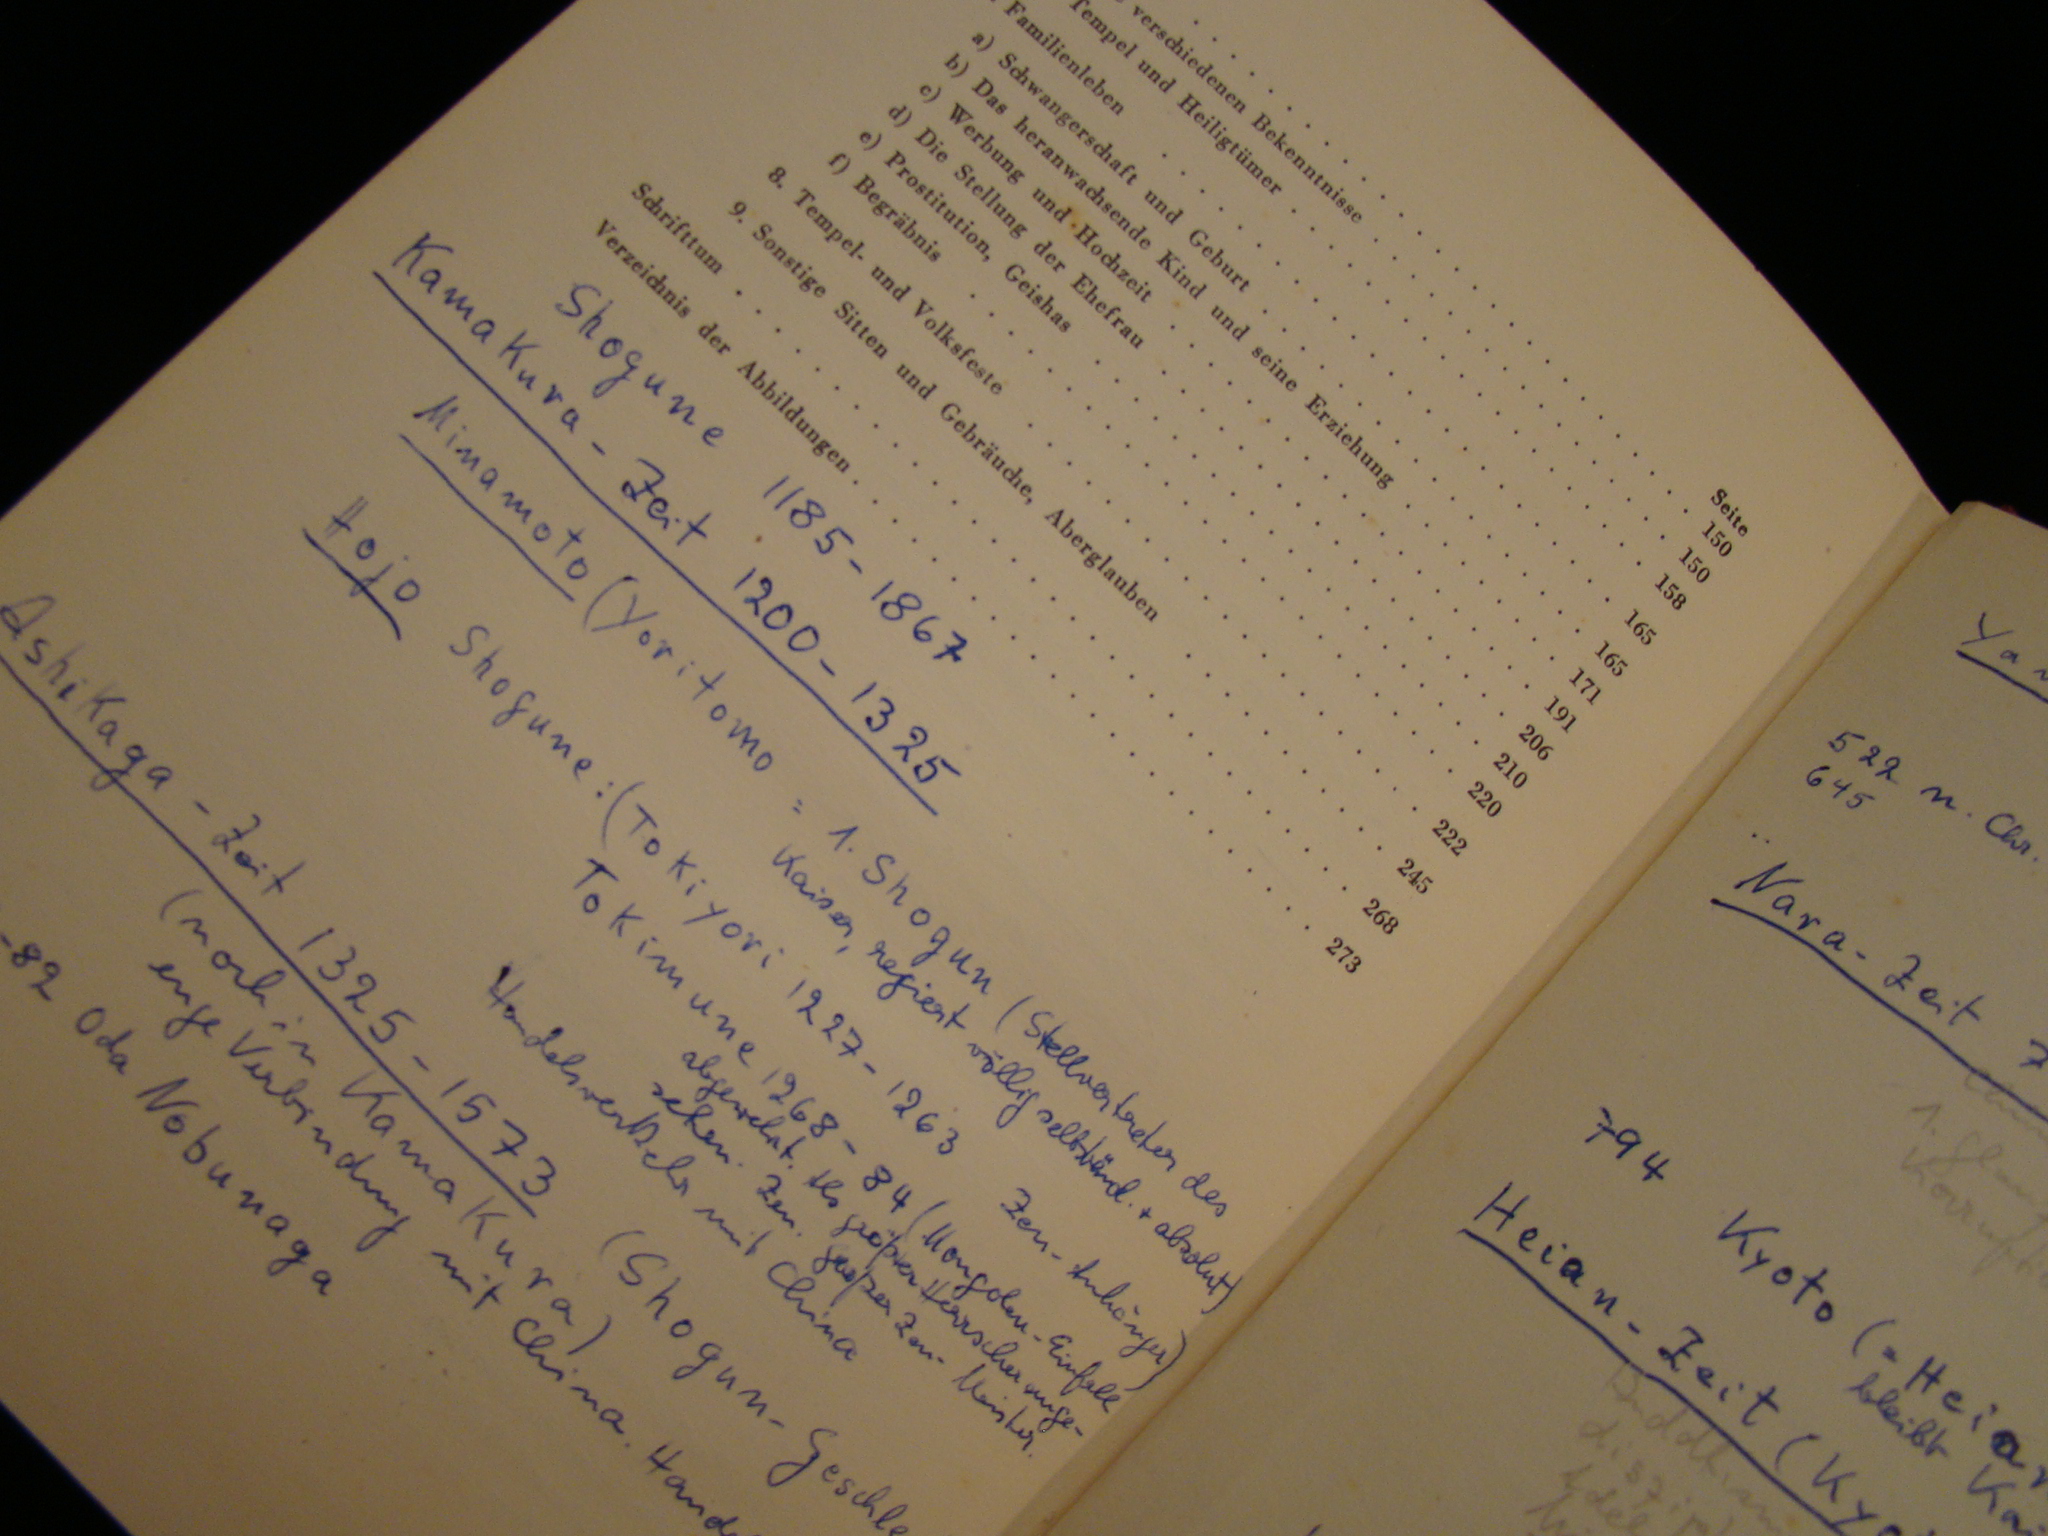 Seite
verschiedenen Bekenntnisse . . . 150
Tempel und Heiligtümer . . . 150
Familienleben . . . 158
a) Schwangerschaft und Geburt . . . 165
b) Das heranwachsende Kind und seine Erziehung . . . 165
c) Werbung und Hochzeit . . . 171
d) Die Stellung der Ehefrau . . . 191
e) Prostitution, Geishas . . . 206
f) Begräbnis . . . 210
8. Tempel- und Volksfeste . . . 220
9. Sonstige Sitten und Gebräuche, Aberglauben . . . 222
Schrifttum . . . 268
Verzeichnis der Abbildungen . . . 273
245
Shogune 1185-1867
Kamakura-Zeit 1200-1325
Minamoto (Yoritomo = 1. Shogun (Stellvertreter des
Kaisers, regiert völlig selbständ. + absolut)
Hojo Shogune: (Tokiyori 1227-1263 Zen-Anhänger)
Tokimune 1268-84 (Mongolen-Einfall
abgewehrt. Als großer Herrscher ange-
sehen. Zen. Großer Zen-Meister.
Handelsverkehr mit China
Ashikaga-Zeit 1325-1573 (Shogun-Geschle
(noch in Kamakura)
enge Verbindung mit China. Hande
-82 Oda Nobunaga
Yam
522 n. Chr.
645
Nara-Zeit 7
1.
794 Kyoto (= Heian
bleibt Ka
Heian-Zeit (Kyo